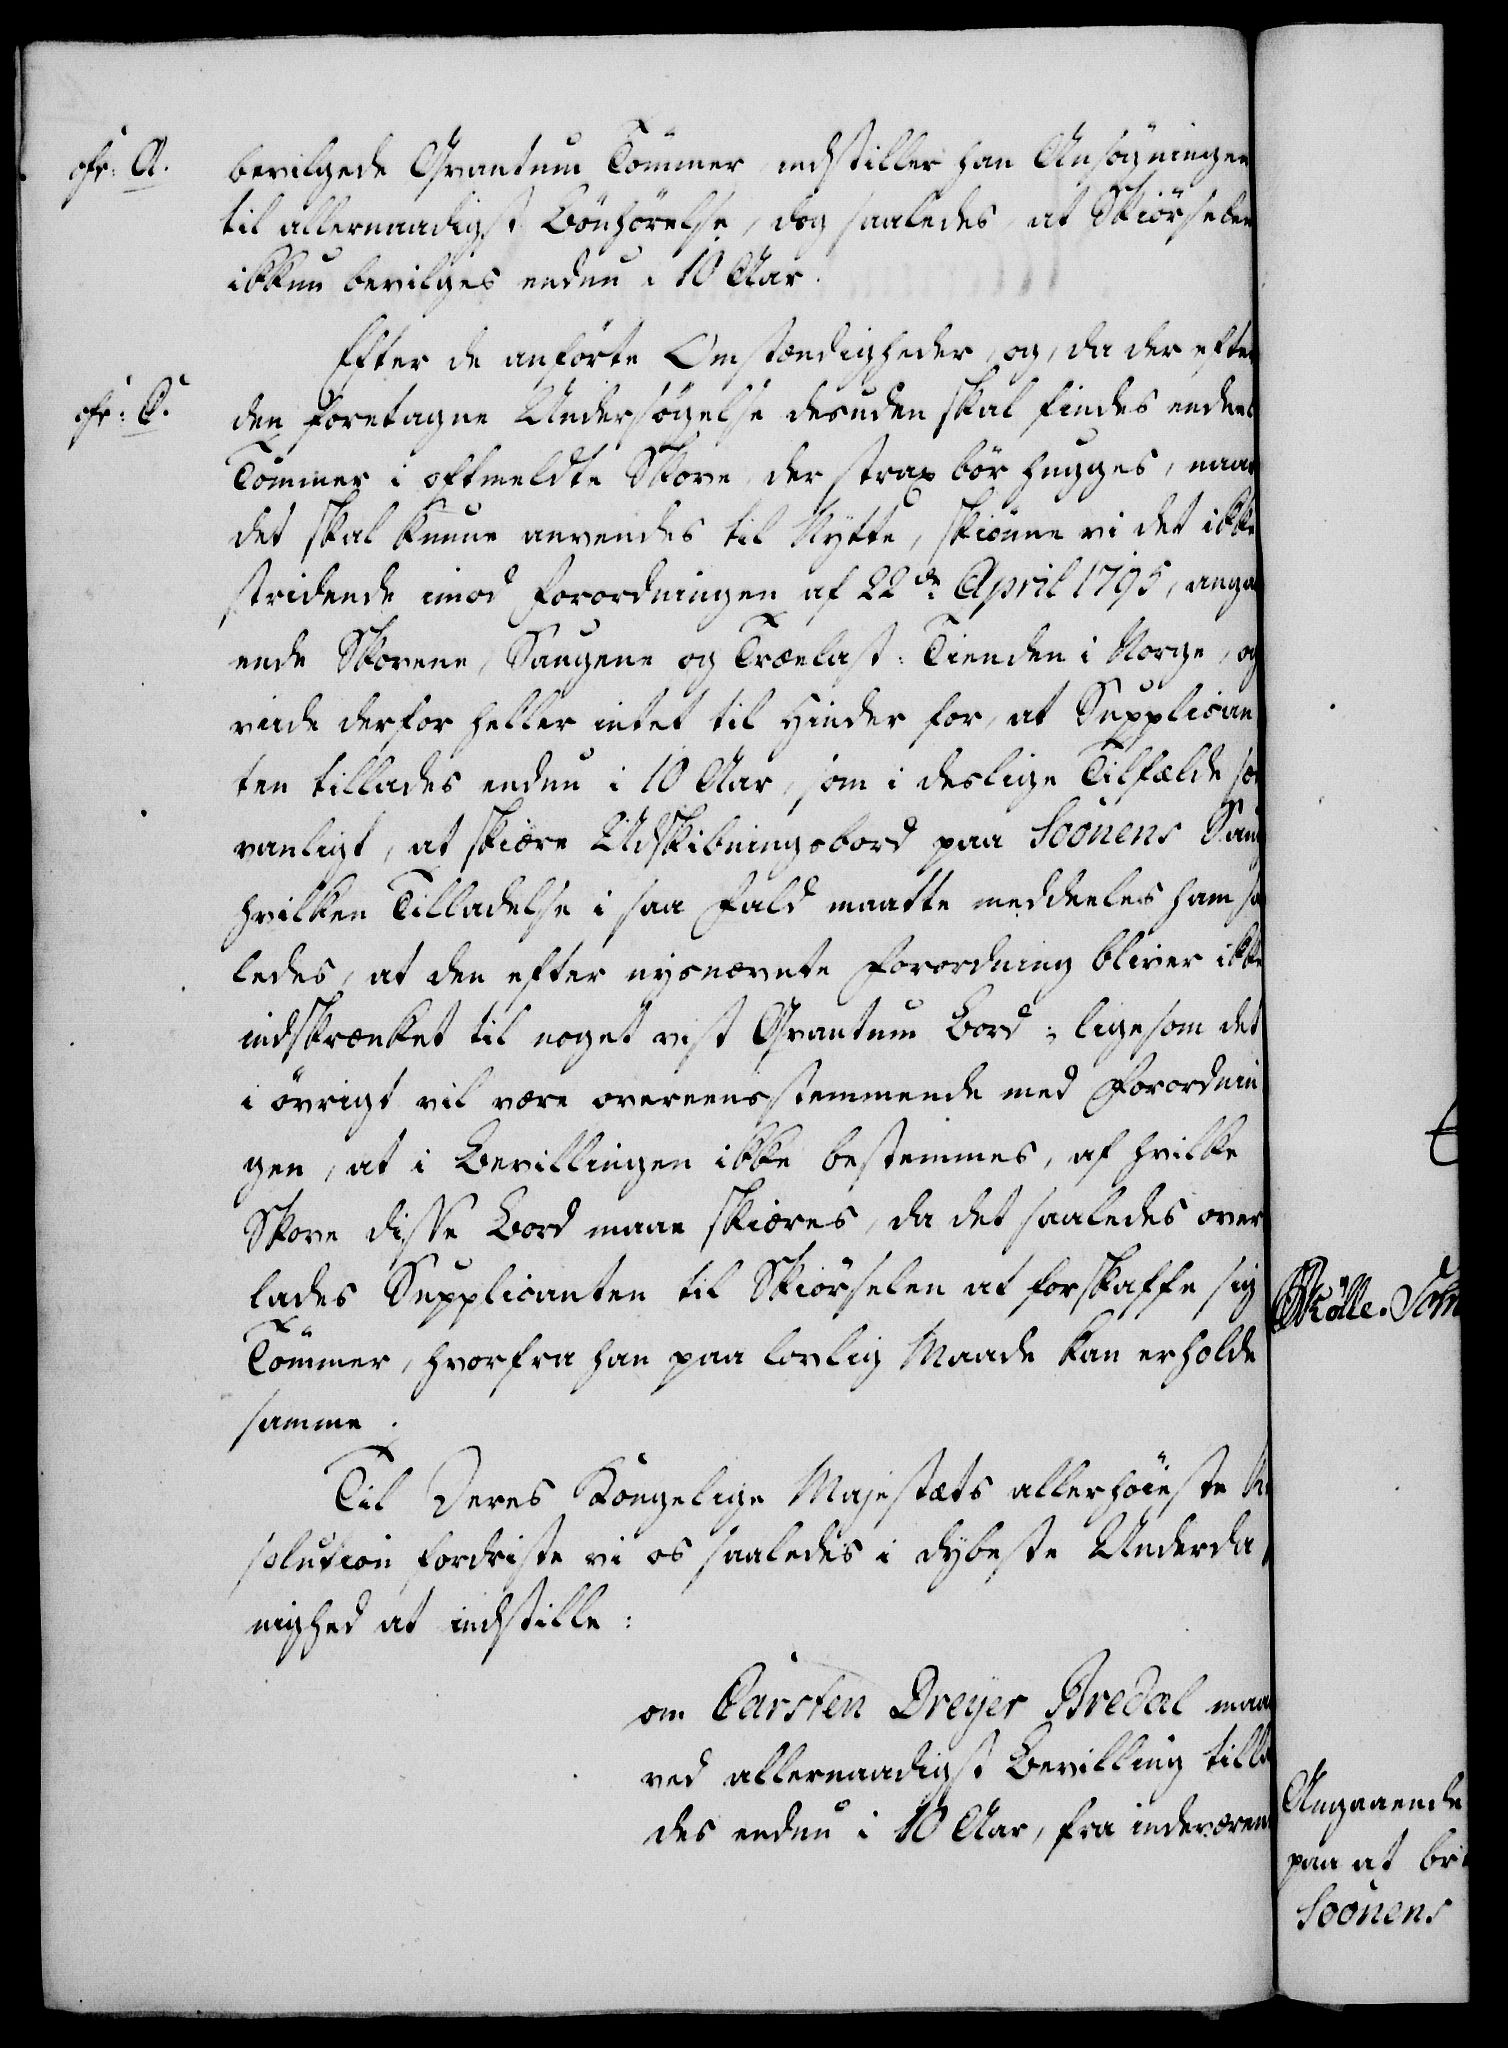 cfr: A.
bevilgede Qvantum Tømmer, indstiller han Ansøgningen
til allernaadigst Bönhörelse, dog saaledes, at Skiörselen
ikkun bevilges endnu i 10 Aar.
Efter de anförte Omstændigheder, og, da der efter
cfr: C.
den foretagne Undersögelse desuden skal findes endeel
Tömmer i oftmeldte Skove, der strax bör hugges, naar
det skal kunne anvendes til Nytte, skiönne vi det ikke
stridende imod Forordningen af 22de April 1795, angaa
ende Skovene, Saugene og Trælast-Tienden i Norge, og
viide derfor heller intet til Hinder for, at Supplican
ten tillades endnu i 10 Aar, som i deslige Tilfælde sæd
vanligt, at skiære Udskibningsbord paa Soönens Saug
hvilken Tilladelse i saa Fald maatte meddeeles ham saa
ledes, at den efter nysnævnte Forordning bliver ikke
indskrænket til noget vist Qvantum Bord; ligesom det
i övrigt vil være overeensstemmende med Forordnin
gen, at i Bevillingen ikke bestemmes, af hvilke
Skove disse Bord maae skiæres, da det saaledes over
lades Supplicanten til Skiörselen at forskaffe sig
Tömmer, hvorfra han paa lovlig Maade kan erholde
samme.
Til Deres Kongelige Majestæts allerhöieste Re
solution fordriste vi os saaledes i dybeste Underda
nighed at indstille:
om Carsten Dreyer Bredal maa
ved allernaadigst Bevilling tilla
des endnu i 10 Aar, fra indeværen
Angaaende
paa at br
Soönens